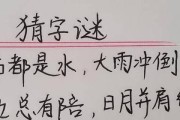 猜字谜
都是水，大雨冲倒
总有陪，日月并肩